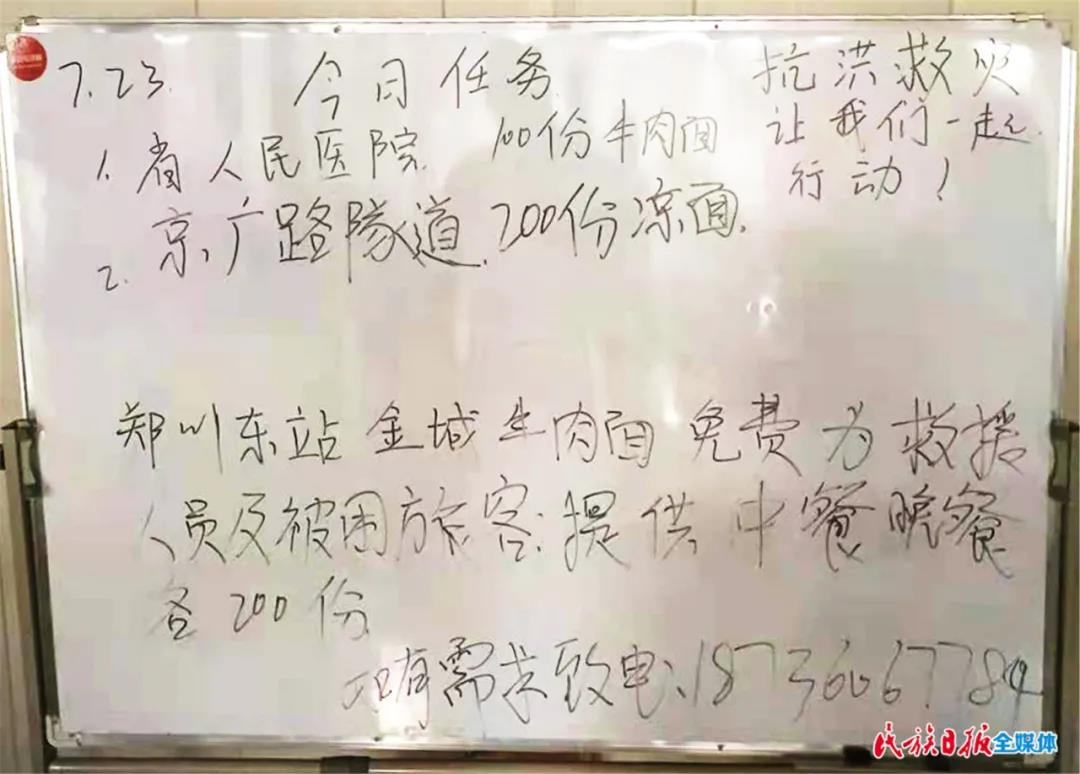 7.23. 今日任务
抗洪救灾
让我们一起
行动！
1. 省人民医院. 100份牛肉面
2. 京广路隧道. 200份凉面.
郑州东站 金城牛肉面 免费为救援
人员及被困旅客提供中餐晚餐
各200份
有需求致电: 18736067784
民族日报全媒体